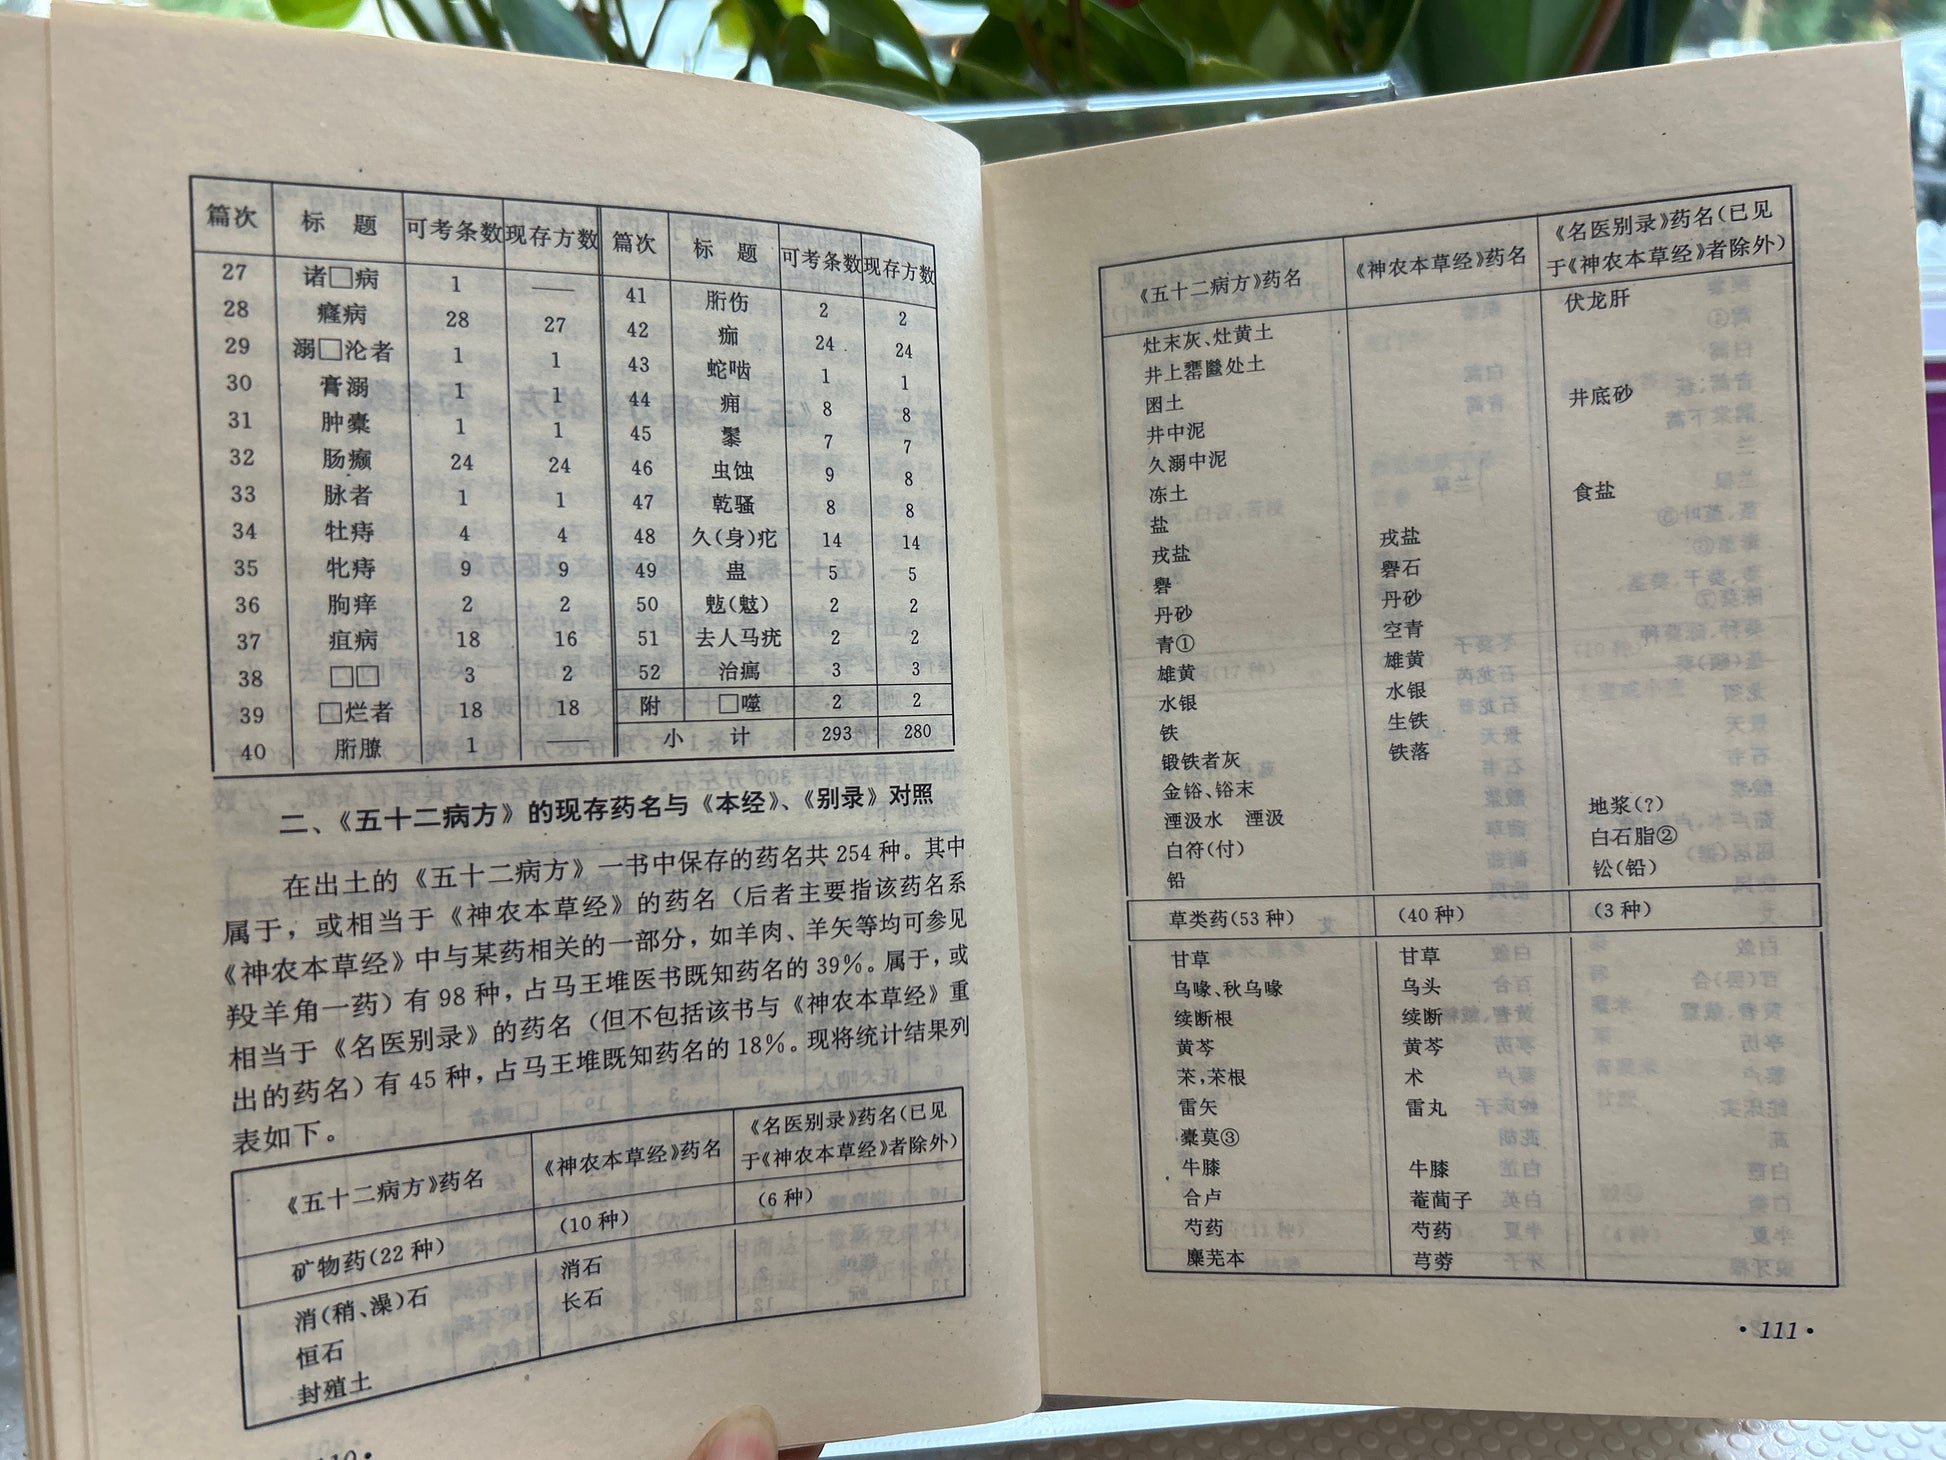 篇次 标 题 可考条数 现存方数 篇次 标 题 可考条数 现存方数
27 诸□病 1 —— 41 胻伤 2 2
28 癃病 28 27 42 痂 24 24
29 溺□沦者 1 1 43 蛇啮 1 1
30 膏溺 1 1 44 痈 8 8
31 肿橐 1 1 45 鬃 7 7
32 肠癞 24 24 46 虫蚀 9 8
33 脉者 1 1 47 乾骚 8 8
34 牡痔 4 4 48 久(身)疕 14 14
35 牝痔 9 9 49 蛊 5 5
36 朐痒 2 2 50 鬾(鬾) 2 2
37 疽病 18 16 51 去人马疣 2 2
38 □□ 3 2 52 治瘑 3 3
39 □烂者 18 18 附 □噬 2 2
40 胻膫 1 —— 小 计 293 280
二、《五十二病方》的现存药名与《本经》、《别录》对照
在出土的《五十二病方》一书中保存的药名共 254 种。其中
属于，或相当于《神农本草经》的药名（后者主要指该药名系
《神农本草经》中与某药相关的一部分，如羊肉、羊矢等均可参见
羖羊角一药）有 98 种，占马王堆医书既知药名的 39%。属于，或
相当于《名医别录》的药名（但不包括该书与《神农本草经》重
出的药名）有 45 种，占马王堆既知药名的 18%。现将统计结果列
表如下。
《五十二病方》药名 《神农本草经》药名 《名医别录》药名(已见
于《神农本草经》者除外)
矿物药(22 种) (10 种) (6 种)
消(稍、澡)石 消石
恒石 长石
封殖土
《五十二病方》药名 《神农本草经》药名 《名医别录》药名(已见
于《神农本草经》者除外)
灶末灰、灶黄土 伏龙肝
井上罋处土
囷土
井中泥 井底砂
久溺中泥
冻土
盐 食盐
戎盐 戎盐
礜 礜石
丹砂 丹砂
青① 空青
雄黄 雄黄
水银 水银
铁 生铁
锻铁者灰 铁落
金铪、铪末
湮汲水 湮汲 地浆(?)
白符(付) 白石脂②
铅 鈆(铅)
草类药(53 种) (40 种) (3 种)
甘草 甘草
乌喙、秋乌喙 乌头
续断根 续断
黄芩 黄芩
茱,茱根 术
雷矢 雷丸
橐莫③
牛膝 牛膝
合卢 菴䕡子
芍药 芍药
麋芜本 芎䓖
110·
·111·